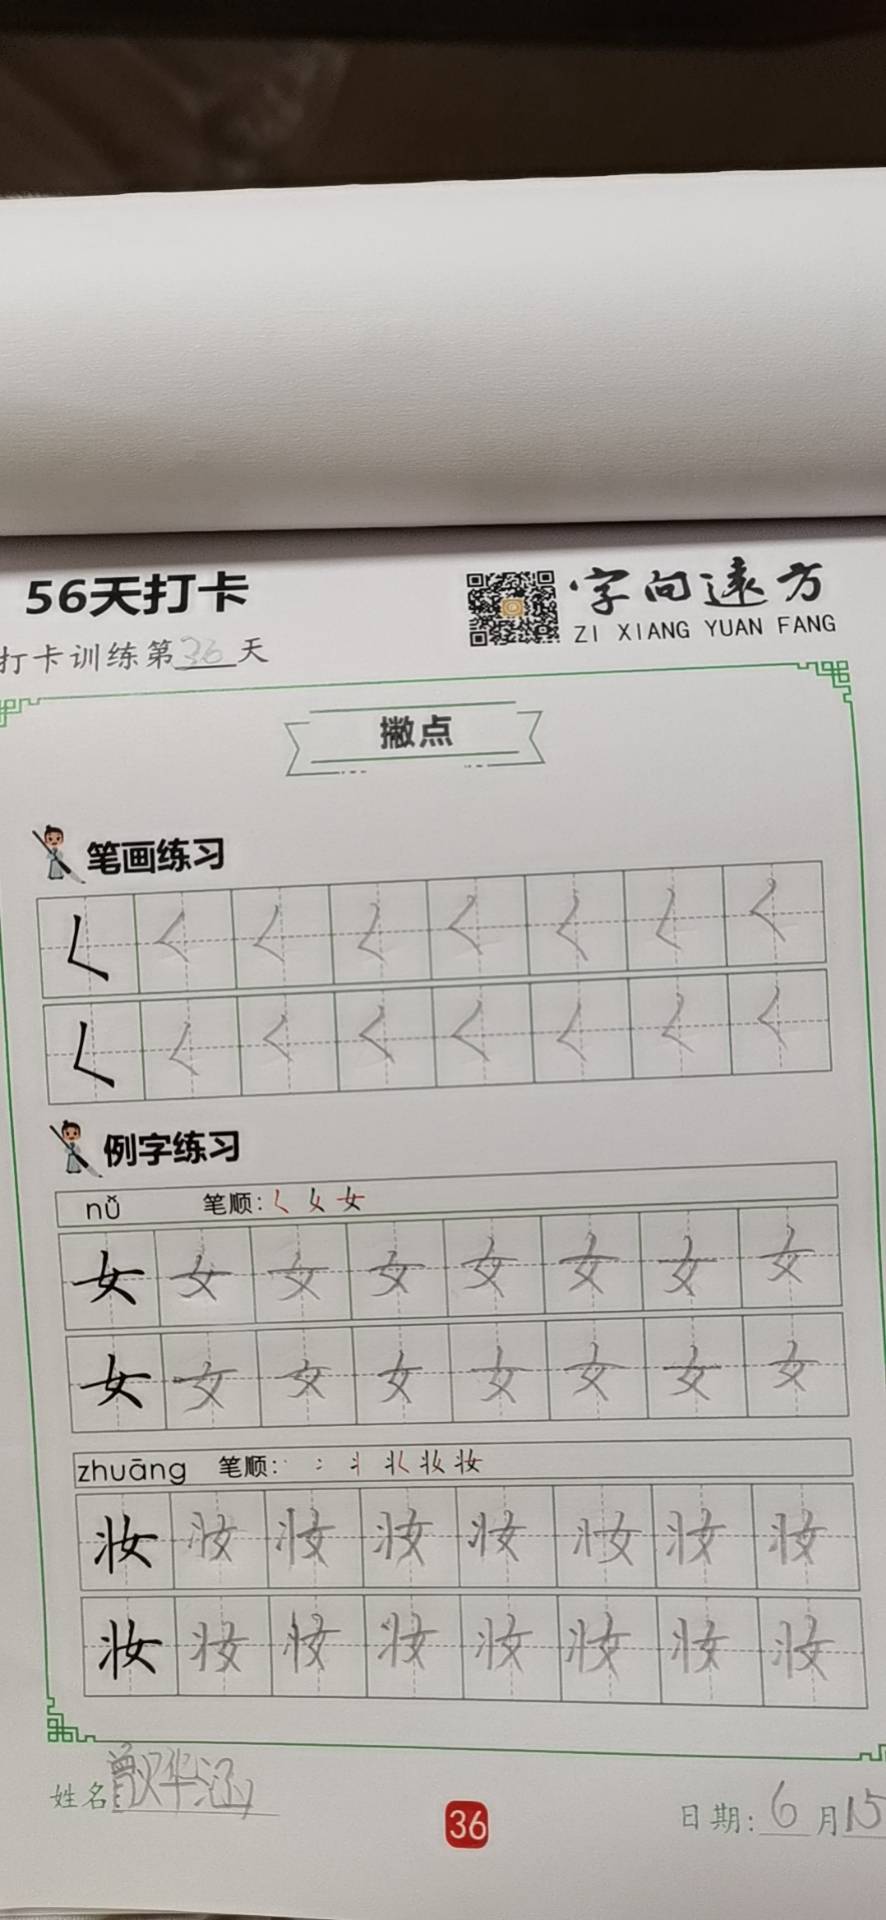 56天打卡
字向遠方
ZI XIANG YUAN FANG
打卡训练第36天
撇点
笔画练习
𡿨 𡿨 𡿨 𡿨 𡿨 𡿨 𡿨 𡿨
𡿨 𡿨 𡿨 𡿨 𡿨 𡿨 𡿨 𡿨
例字练习
nǚ 笔顺: 𡿨 女
女 女 女 女 女 女 女 女
女 女 女 女 女 女 女 女
zhuāng 笔顺: 丬 妆
妆 妆 妆 妆 妆 妆 妆 妆
妆 妆 妆 妆 妆 妆 妆 妆
姓名
36
日期: 6月15